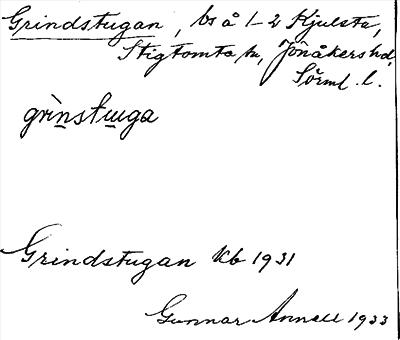 Grindstugan, bs å 1-2 Kjulsta,
Stigtomta sn, Jönåkers hd,
Sörml. l.
grìnstuga
Grindstugan Kb 1931
Gunnar Annell 1933